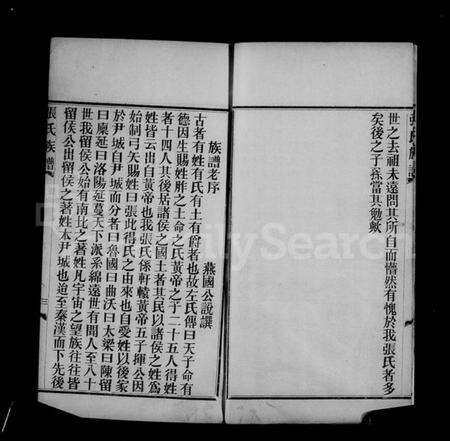 世之去祖未遠問其所自而懵然有愧於我張氏者多
矣後之子孫當其勉歟
張氏族譜
族譜老序
燕國公說譔
古者有姓有氏有土有爵者也故左氏傳曰天子命有
德因生賜姓胙之土命之氏黃帝之子二十五人得姓
者十四人其後居諸侯之國土者其民以諸侯之姓為
姓皆云出自黃帝也我張氏係軒轅黃帝五子揮公因
始制弓矢賜姓曰張此得氏之由來也自受姓以後家
於尹城自尹城而分者曰魯國曰曲沃曰太梁曰陳留
曰廩延曰洛陽延蔓天下派系綿遠世有聞人至八十
世我留侯公始有南北之著姓凡宇宙之望族往往皆
留侯公出留侯之著姓本尹城也迨至秦漢而下先後
張氏族譜